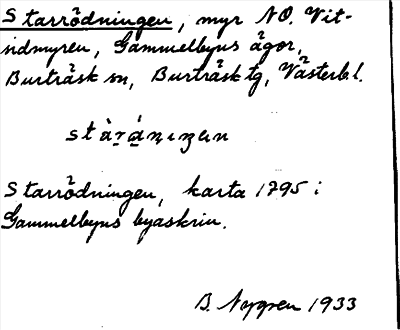 Starrödningen, myr NO. Vit-
sidmyren, Gammelbyns ägor,
Burträsk sn, Burträsk tg, Västerb. l.
Starrödningen, karta 1795 i
Gammelbyns byaskrin.
B. Nygren 1933